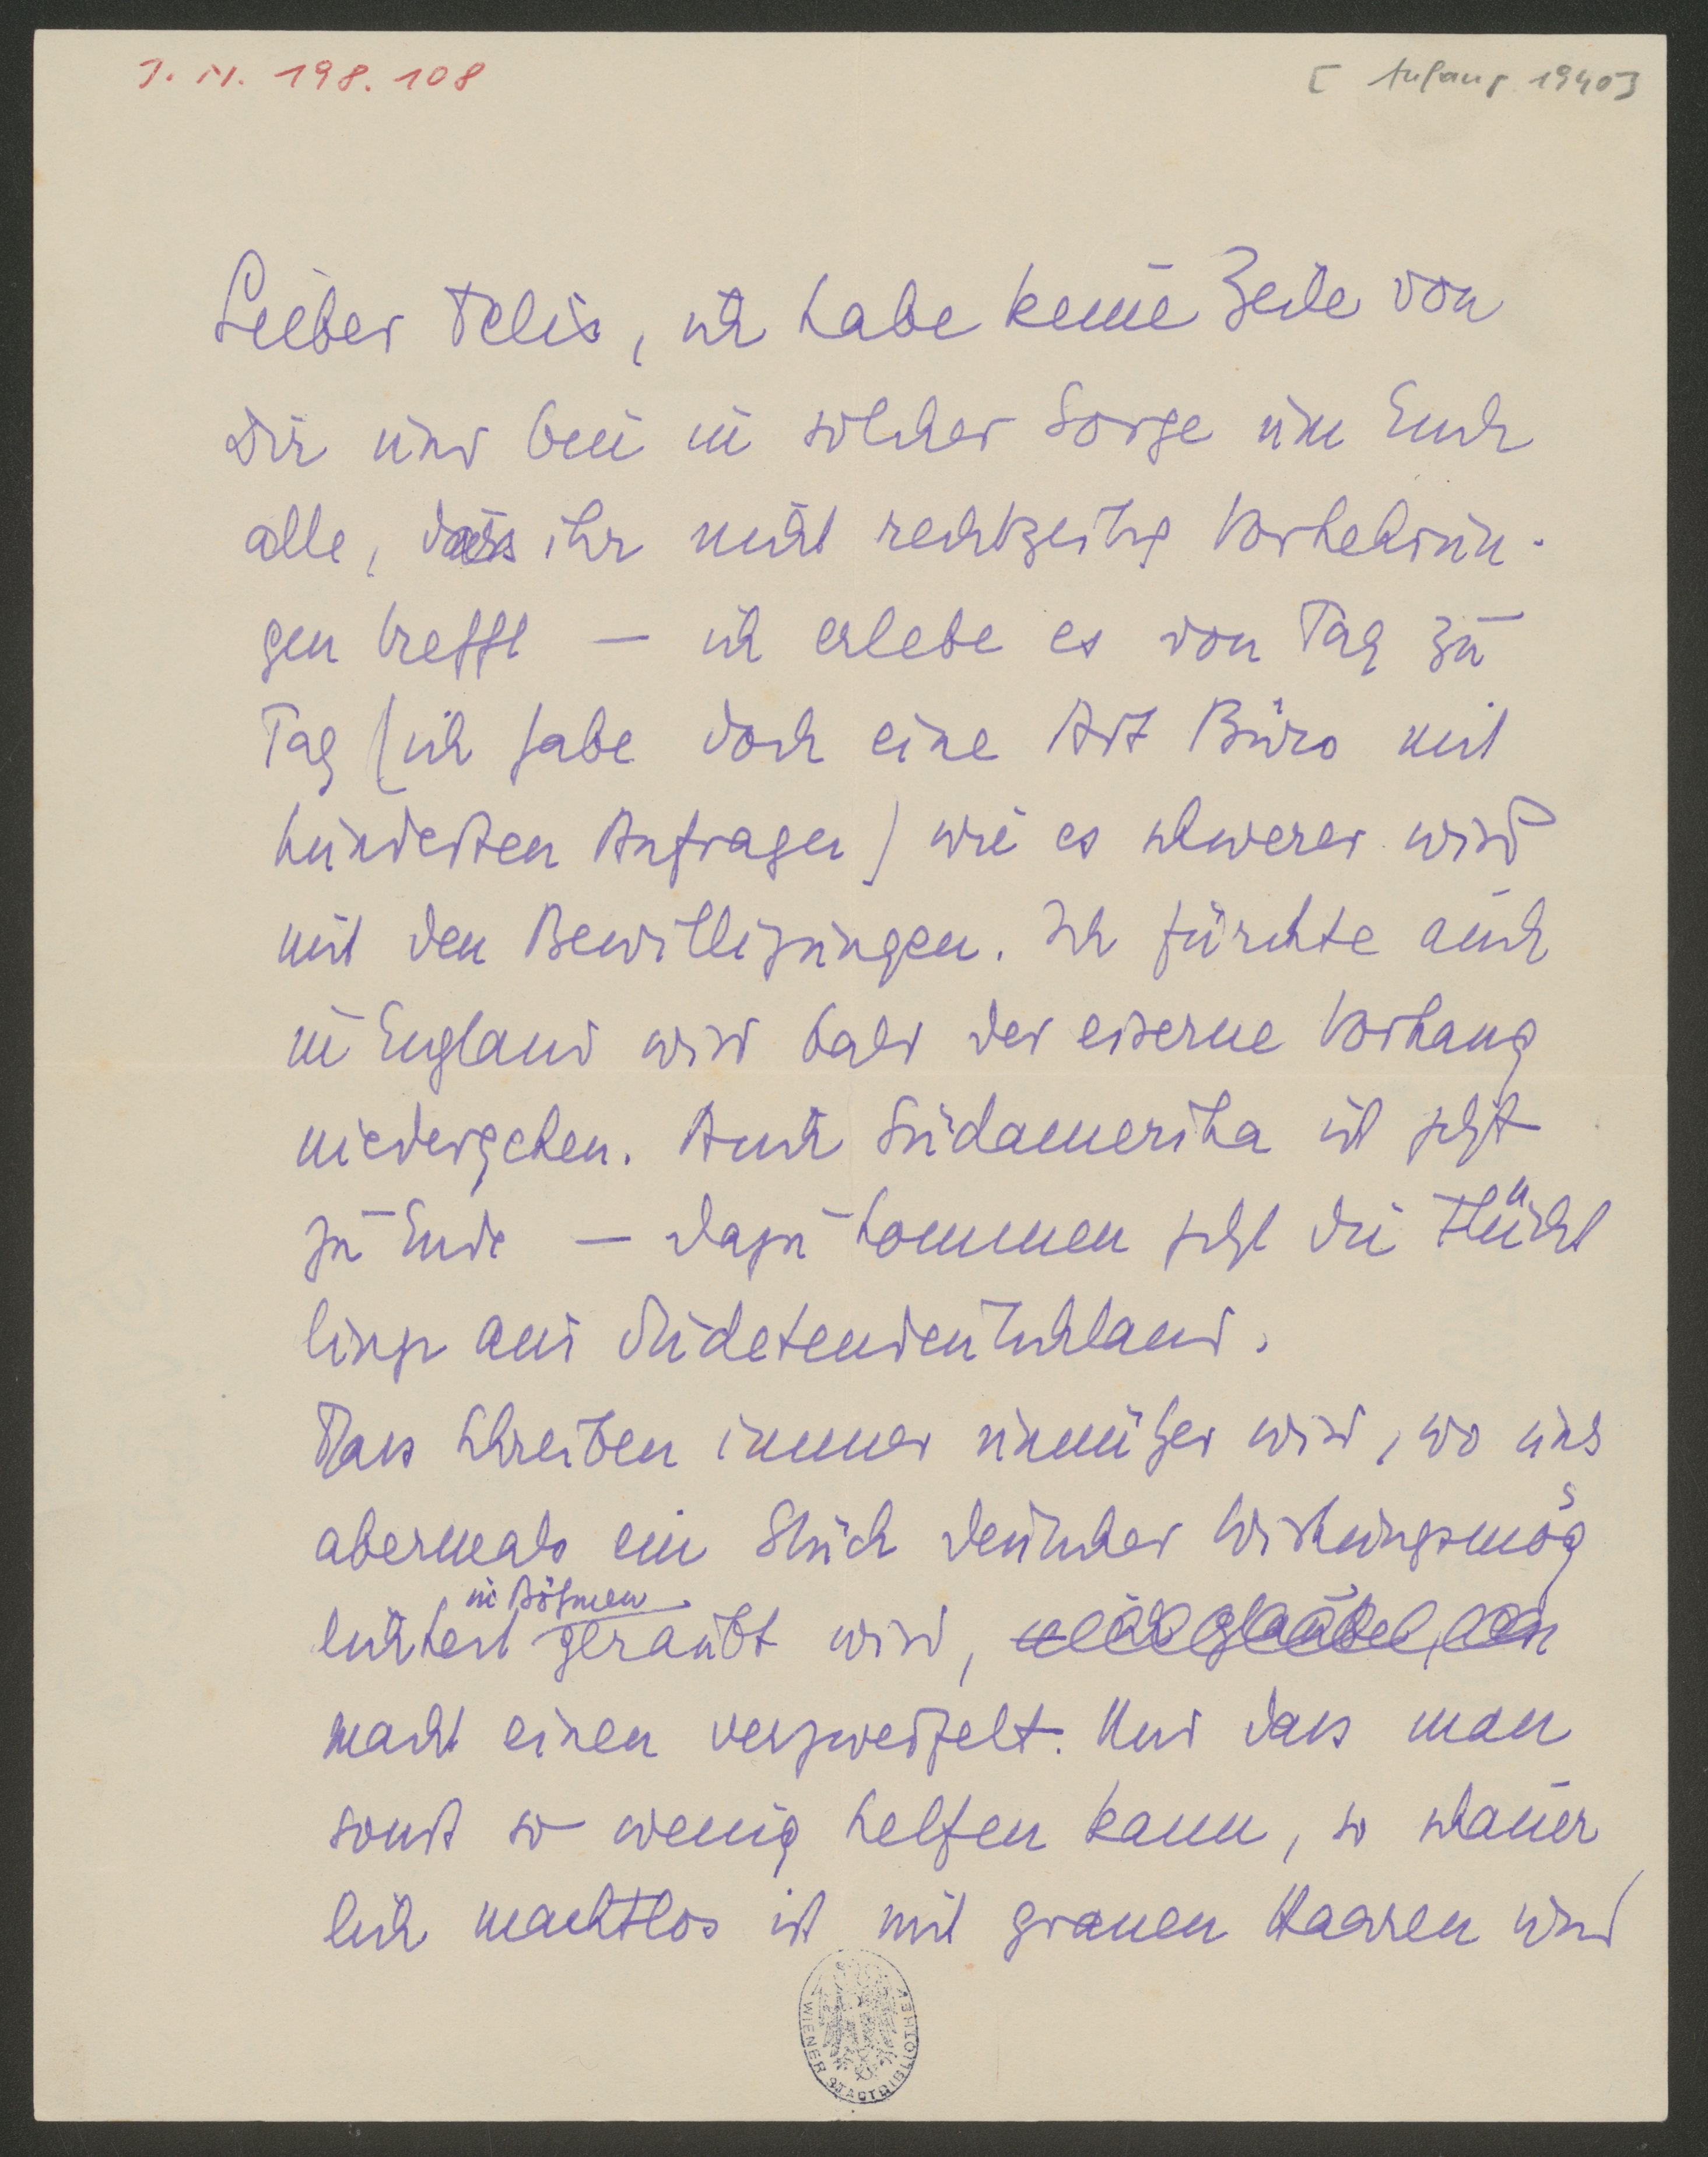 I. N. 198.108
[Anfang 1940]
Lieber Felix, ich habe keine Zeile von
Dir und bin in solcher Sorge um Euch
alle, dass ihr nicht rechtzeitig Vorkehrun-
gen trefft — ich erlebe es von Tag zu
Tag (ich habe doch eine Art Büro mit
hunderten Anfragen) wie es schwerer wird
mit den Bewilligungen. Ich fürchte auch
in England wird bald der eiserne Vorhang
niedergehen. Auch Südamerika ist jetzt
zu Ende — dazu kommen jetzt die Flücht
linge aus Sudetendeutschland.
Dass Schreiben immer unnützer wird, wo uns
abermals ein Stück deutscher Wirkungsmög
in Böhmen
lichkeit geraubt wird,
macht einen verzweifelt. Und dass man
sonst so wenig helfen kann, so schauer
lich machtlos ist mit grauen Haaren und
WIENER STADTBIBLIOTHEK